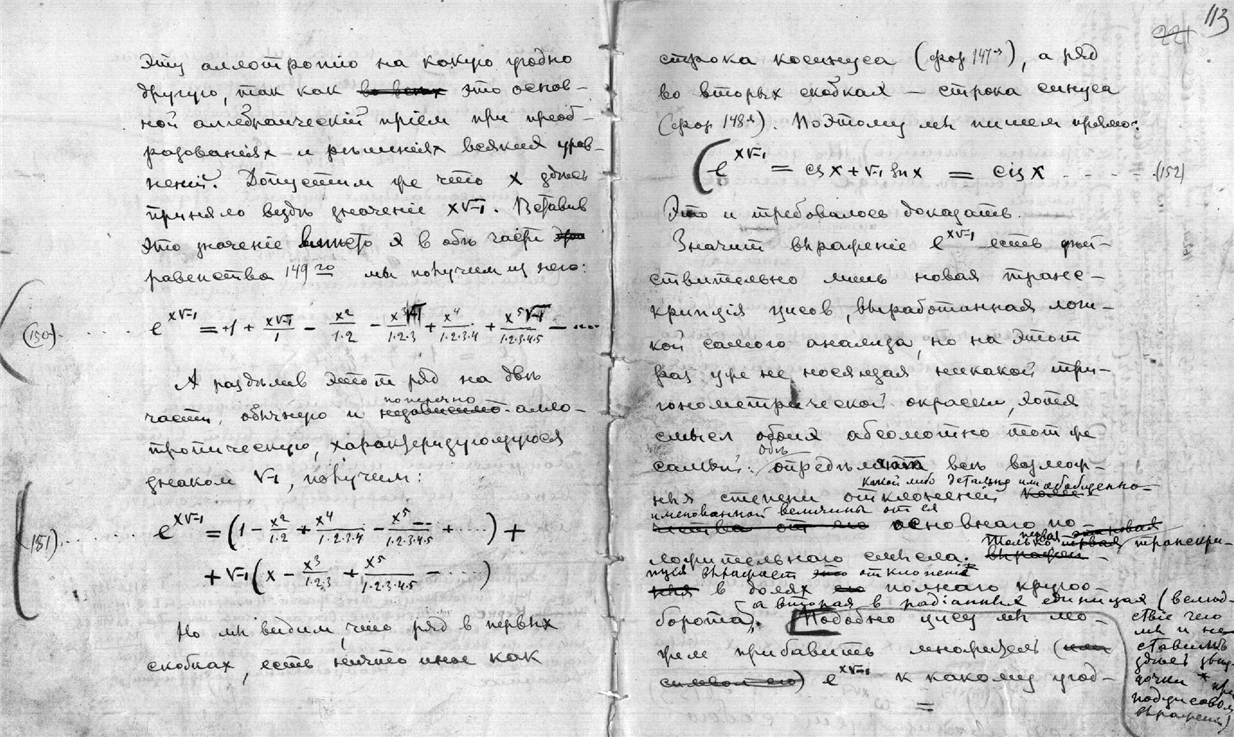 эту аллотропію на какую угодно
другую, так как во всех это основ-
ной алгебраическій пріём при преоб-
разованіях и рѣшеніях всяких урав-
неній. Допустим же что x здѣсь
приняло вездѣ значеніе x√-1. Вставив
это значеніе вместо x в обѣ части
равенства 149го мы получим из него:
(150) ...... e^{x√-1} = +1 + x√-1/1 - x²/1·2 - x³√-1/1·2·3 + x⁴/1·2·3·4 + x⁵√-1/1·2·3·4·5 - ....
А раздѣлив этот ряд на двѣ
поперечно
части, обычную и независимо-алло-
тропическую, характеризующуюся
знаком √-1, получим:
(151) ..... e^{x√-1} = (1 - x²/1·2 + x⁴/1·2·3·4 - x⁵/1·2·3·4·5 + ····) +
+ √-1 (x - x³/1·2·3 + x⁵/1·2·3·4·5 - ····)
Но мы видим, что ряд в первых
скобках, есть ничто иное как
113
221
строка косинуса (фор 147я), а ряд
во вторых скобках — строка синуса
(фор 148я). Поэтому мы пишем прямо:
e^{x√-1} = cs x + √-1 sn x = cis x ..... (152)
Это и требовалось доказать.
Значит выраженіе e^{x√-1} есть дѣй-
ствительно лишь новая транс-
крипція цисов, выработанная логи-
кой самого анализа, но на этот
раз уже не носящая никакой три-
гонометрической окраски, хотя
смысл обоих абсолютно тот же
обѣ
самый: опредѣляют всѣ возмож-
какой либо детально или обыденно-
ныя степени отклоненій
именованной величины от ея
основнаго по-
первая
только первая транскри-
ложительнаго смысла.
пція выражает это отклоненіе
в долях полнаго круго
а вторая в радіанных единицах (вслѣд-
ствіе чего
мы и не
ставим
здѣсь звѣз-
дочки * при
подцисовом
выраженіи)
борота. Подобно цису мы мо-
жем прибавить множитель (или
символ его) e^{x√-1} к какому угод-